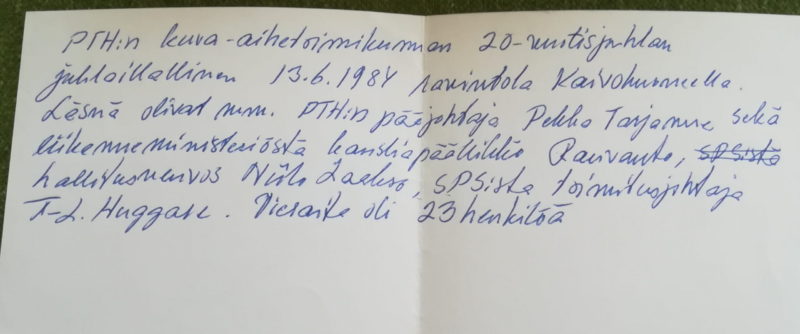 PTH:n kuva-aihetoimikunnan 20-vuotisjuhlan
juhlaillallinen 13.6.1984 ravintola Kaivohuoneella.
Läsnä olivat mm. PTH:n pääjohtaja Pekka Tarjanne sekä
liikenneministeriöstä kansliapäällikkö Rauvanto, SPSistä
hallitusneuvos Niilo Laakso, SPSista toimitusjohtaja
T-L. Huggare. Vieraita oli 23 henkilöä